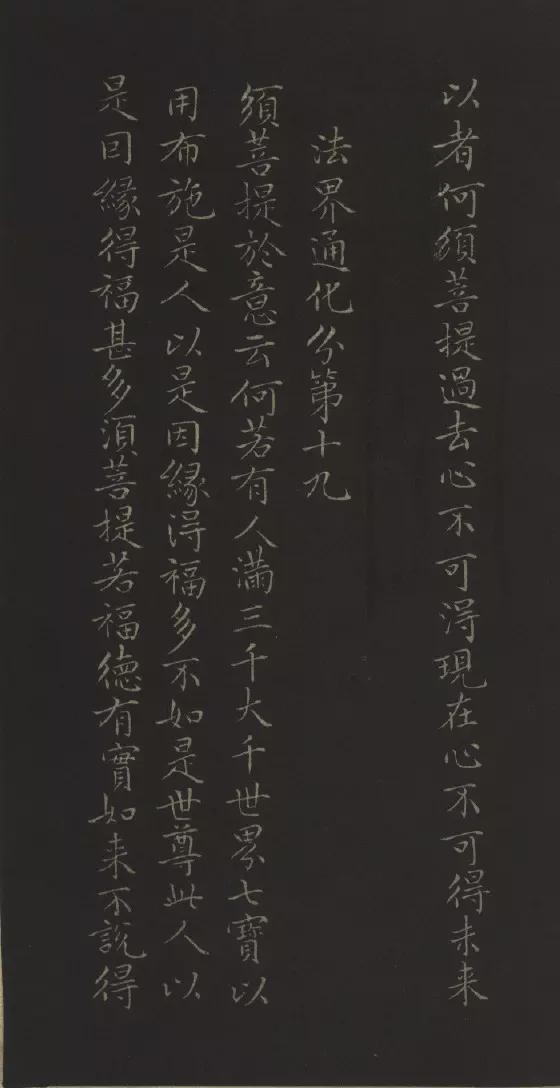 以者何須菩提過去心不可淂現在心不可得未来
法界通化分第十九
須菩提於意云何若有人滿三千大千世界七寶以
用布施是人以是因緣淂福多不如是世尊此人以
是因緣得福甚多湏菩提若福德有實如来不說得